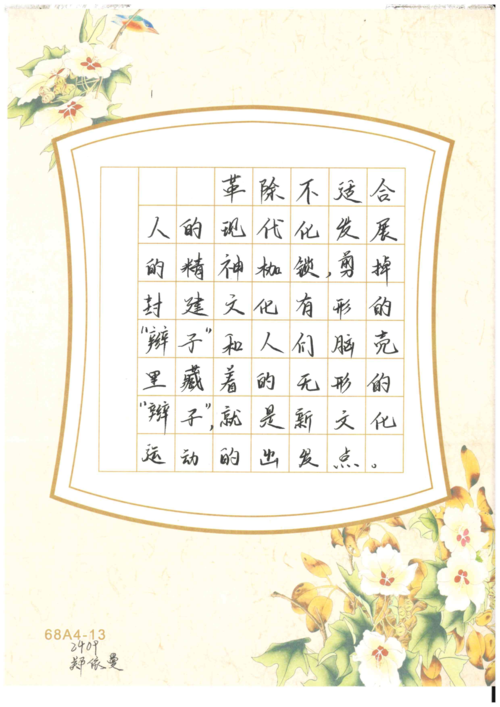 革除不适合
人的现代化发展
的精神枷锁,剪掉
封建文化有形的
“辫子”和人们脑壳
里藏着的无形的
“辫子”,就是新文化
运动的出发点。
68A4-13
2409
郑依曼